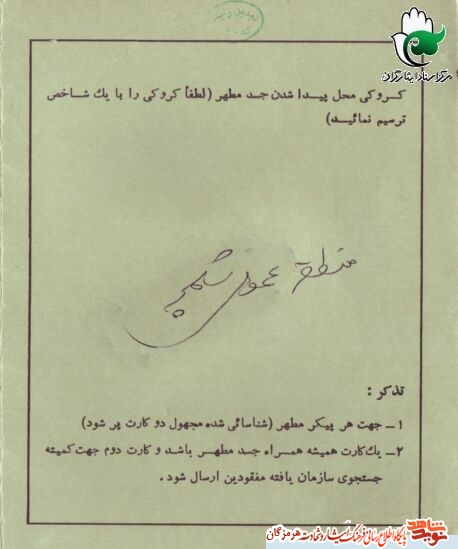 مرکز اسناد ایثارگران
کروکی محل پیدا شدن جسد مطهر (لطفاً کروکی را با یك شاخص
ترسیم نمائید)
منطقه عمومی شلمچه
تذکر :
۱ـ جهت هر پیکر مطهر (شناسائی شده مجهول دو کارت پر شود)
۲ـ یك کارت همیشه همراه جسد مطهر باشد و کارت دوم جهت کمیته
جستجوی سازمان یافته مفقودین ارسال شود .
نوید شاهد
پایگاه اطلاع رسانی فرهنگ ایثار و شهادت هرمزگان